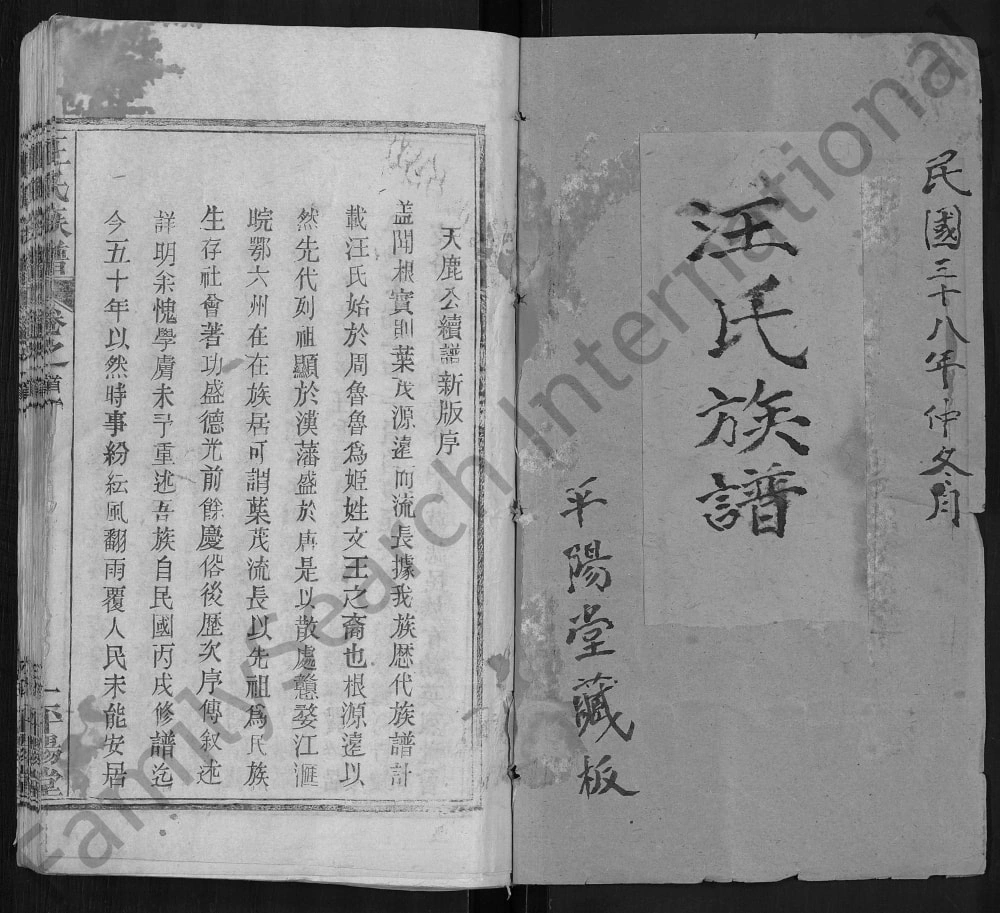 民國三十八年仲冬月
汪氏族譜
平陽堂藏板
天鹿公續譜新版序
蓋聞根實則葉茂源遠而流長據我族歷代族譜計
載汪氏始於周魯魯為姬姓文王之裔也根源遠以
然先代列祖顯於漢藩盛於唐是以散處戇婺江滙
皖鄂六州在在族居可謂葉茂流長以先祖為氏族
生存社會著功盛德光前餘慶俗後歷次序傳叙述
詳明余愧學膚未予重述吾族自民國丙戌修譜迄
今五十年以然時事紛紜風翻雨覆人民未能安居
汪氏族譜 卷之首 平陽堂
FamilySearch International